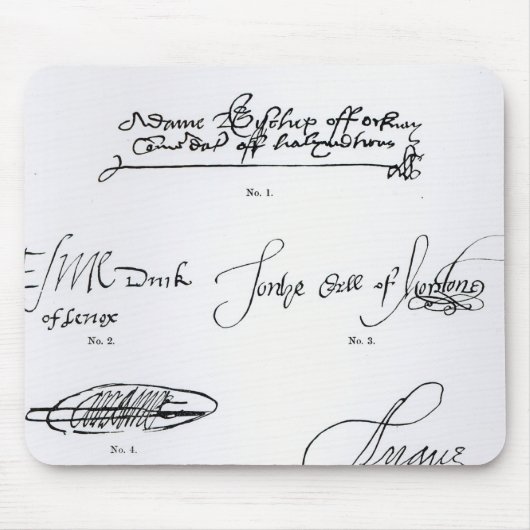 Adame Bischep off orknay
Comẽdat off halyrudhous
No. 1.
ESME Duik
of Lenox
No. 2.
Erll of Mortone
No. 3.
No. 4.